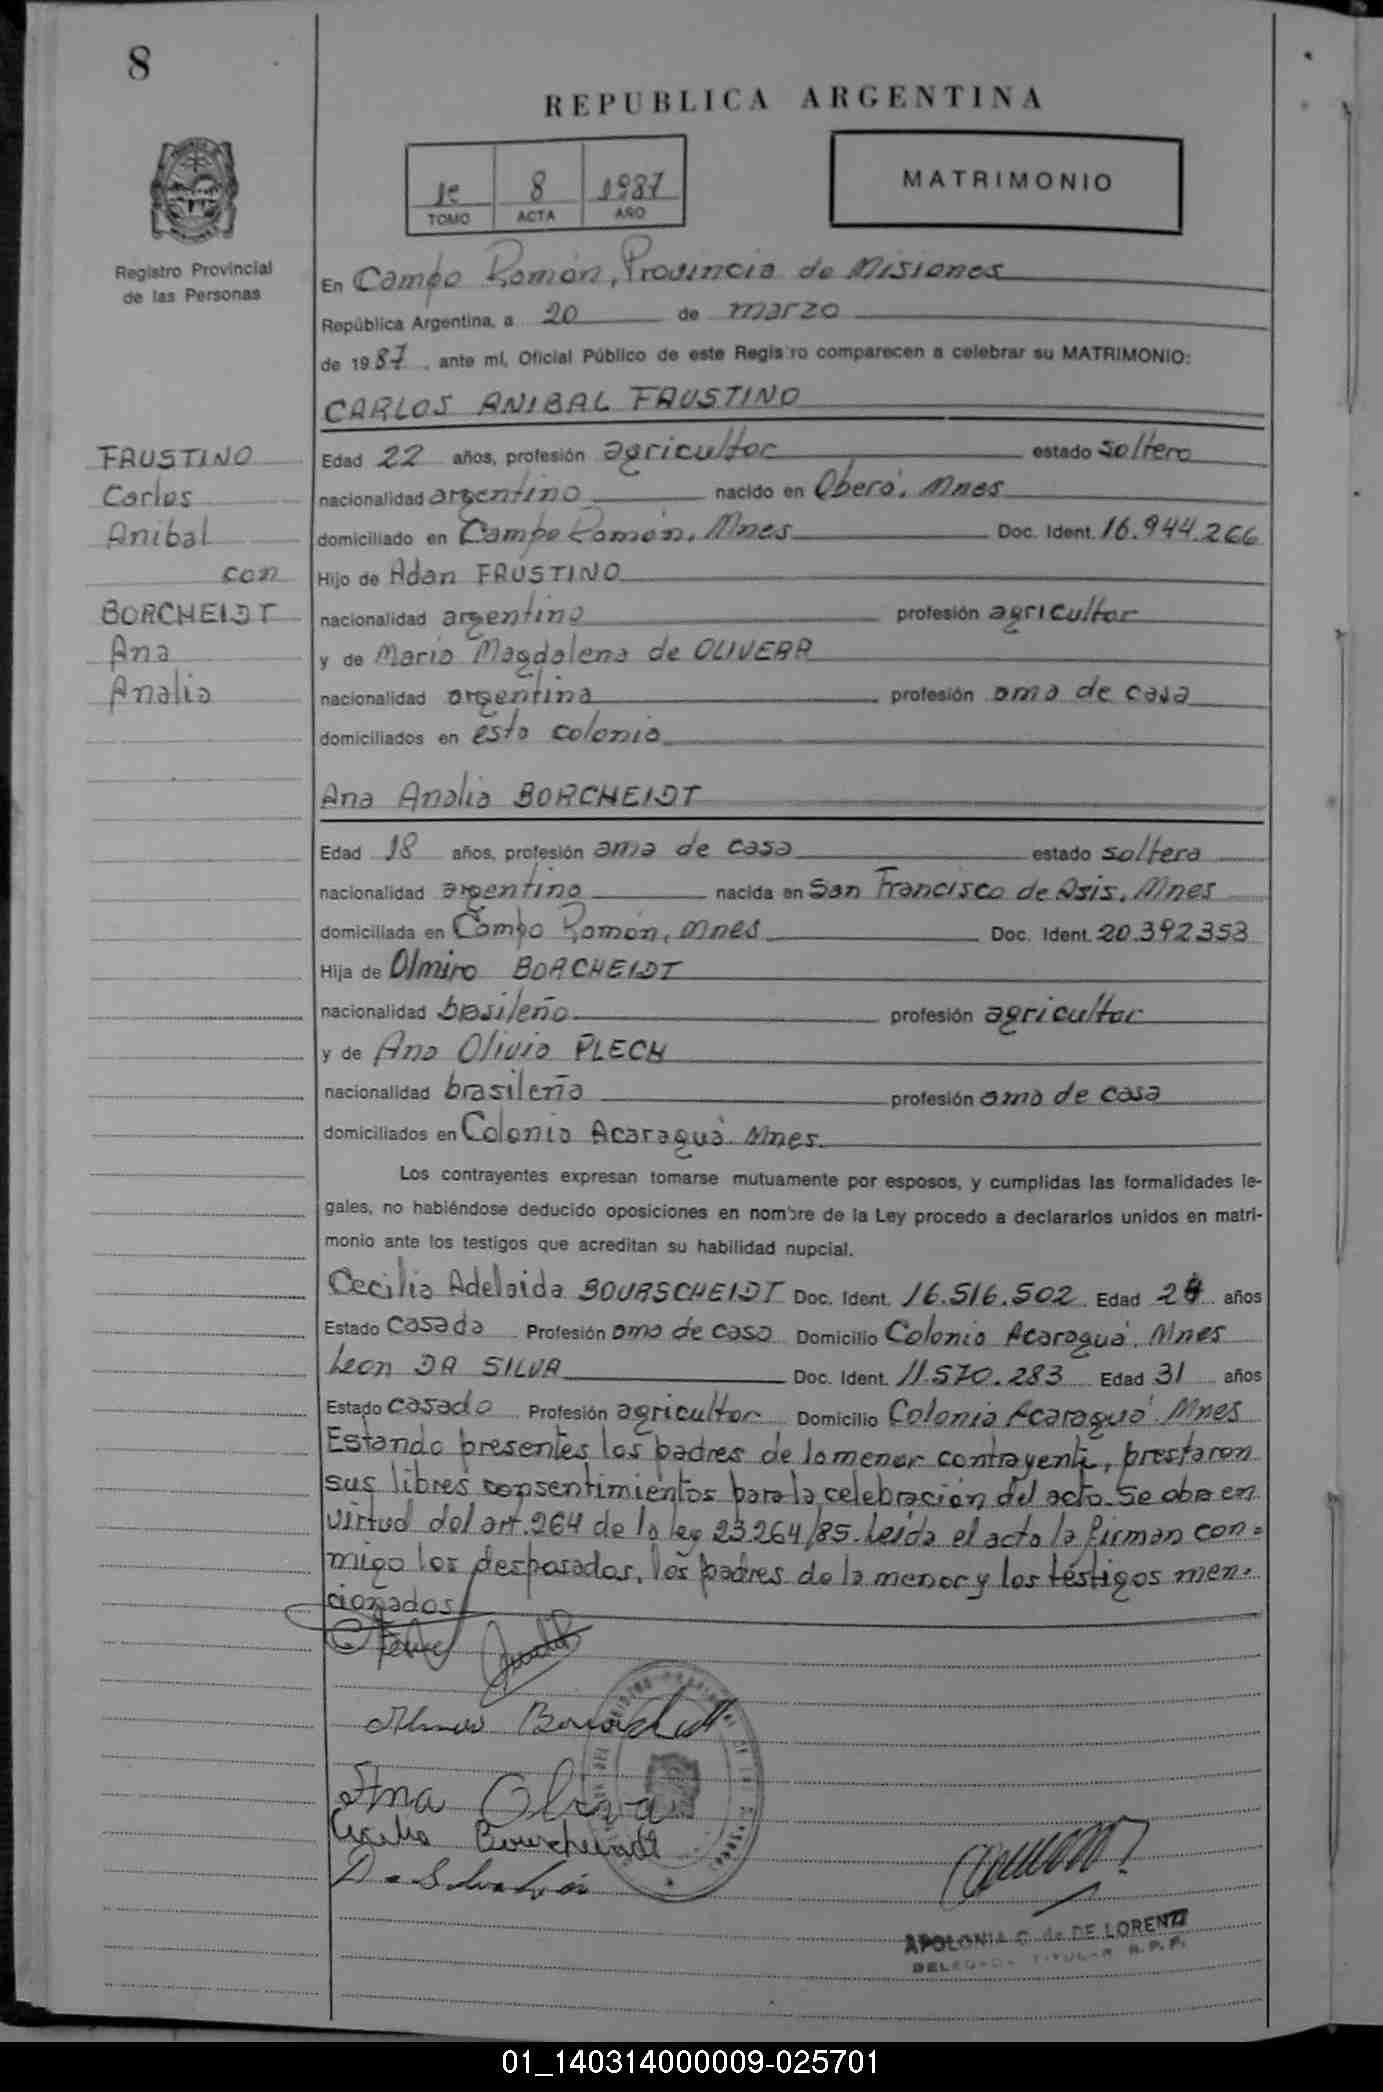 8
REPUBLICA ARGENTINA
1º 8 1987
TOMO ACTA AÑO
MATRIMONIO
Registro Provincial
de las Personas
En Campo Ramón, Provincia de Misiones
República Argentina, a 20 de marzo
de 1987, ante mí, Oficial Público de este Registro comparecen a celebrar su MATRIMONIO:
CARLOS ANIBAL FAUSTINO
FAUSTINO
Carlos
Anibal
con
BORCHEIDT
Ana
Analia
Edad 22 años, profesión agricultor estado soltero
nacionalidad argentino nacido en Oberá, Mnes
domiciliado en Campo Ramón, Mnes Doc. Ident. 16.944.266
Hijo de Adan FAUSTINO
nacionalidad argentino profesión agricultor
y de Maria Magdalena de OLIVERA
nacionalidad argentina profesión ama de casa
domiciliados en esta colonia
Ana Analia BORCHEIDT
Edad 18 años, profesión ama de casa estado soltera
nacionalidad argentina nacida en San Francisco de Asis, Mnes
domiciliada en Campo Ramón, Mnes Doc. Ident. 20.392.353
Hija de Olmiro BORCHEIDT
nacionalidad brasileño profesión agricultor
y de Ana Olivia PLECH
nacionalidad brasileña profesión ama de casa
domiciliados en Colonia Acaraguá. Mnes.
Los contrayentes expresan tomarse mutuamente por esposos, y cumplidas las formalidades le-
gales, no habiéndose deducido oposiciones en nombre de la Ley procedo a declararlos unidos en matri-
monio ante los testigos que acreditan su habilidad nupcial.
Cecilia Adelaida BOURSCHEIDT Doc. Ident. 16.516.502 Edad años
Estado casada Profesión ama de casa Domicilio Colonia Acaraguá. Mnes
Leon DA SILVA Doc. Ident. 11.570.283 Edad 31 años
Estado casado Profesión agricultor Domicilio Colonia Acaraguá. Mnes
Estando presentes los padres de la menor contrayente, prestaron
sus libres consentimientos para la celebración del acto. Se obra en
virtud del art. 264 de la ley 23.264/85. Leída el acta la firman con=
migo los desposados, los padres de la menor y los testigos men-
cionados
Ana Oliva
Cecilia Bourscheidt
APOLONIA C. de DE LORENZI
DELEGADA TITULAR R.P.P.
01_140314000009-025701